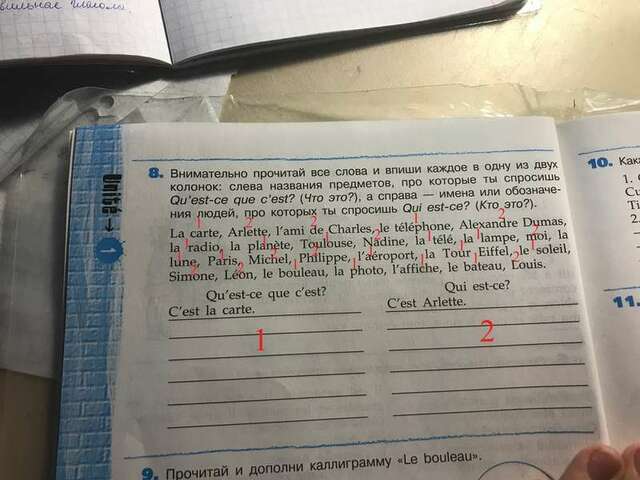 Unité → 1
8. Внимательно прочитай все слова и впиши каждое в одну из двух
колонок: слева названия предметов, про которые ты спросишь
Qu'est-ce que c'est? (Что это?), а справа — имена или обозначе-
ния людей, про которых ты спросишь Qui est-ce? (Кто это?).
La carte, Arlette, l'ami de Charles, le téléphone, Alexandre Dumas,
la radio, la planète, Toulouse, Nadine, la télé, la lampe, moi, la
lune, Paris, Michel, Philippe, l'aéroport, la Tour Eiffel, le soleil,
Simone, Léon, le bouleau, la photo, l'affiche, le bateau, Louis.
Qu'est-ce que c'est? Qui est-ce?
C'est la carte. C'est Arlette.
1 2
9. Прочитай и дополни каллиграмму «Le bouleau».
10. Как
1.
2.
11.